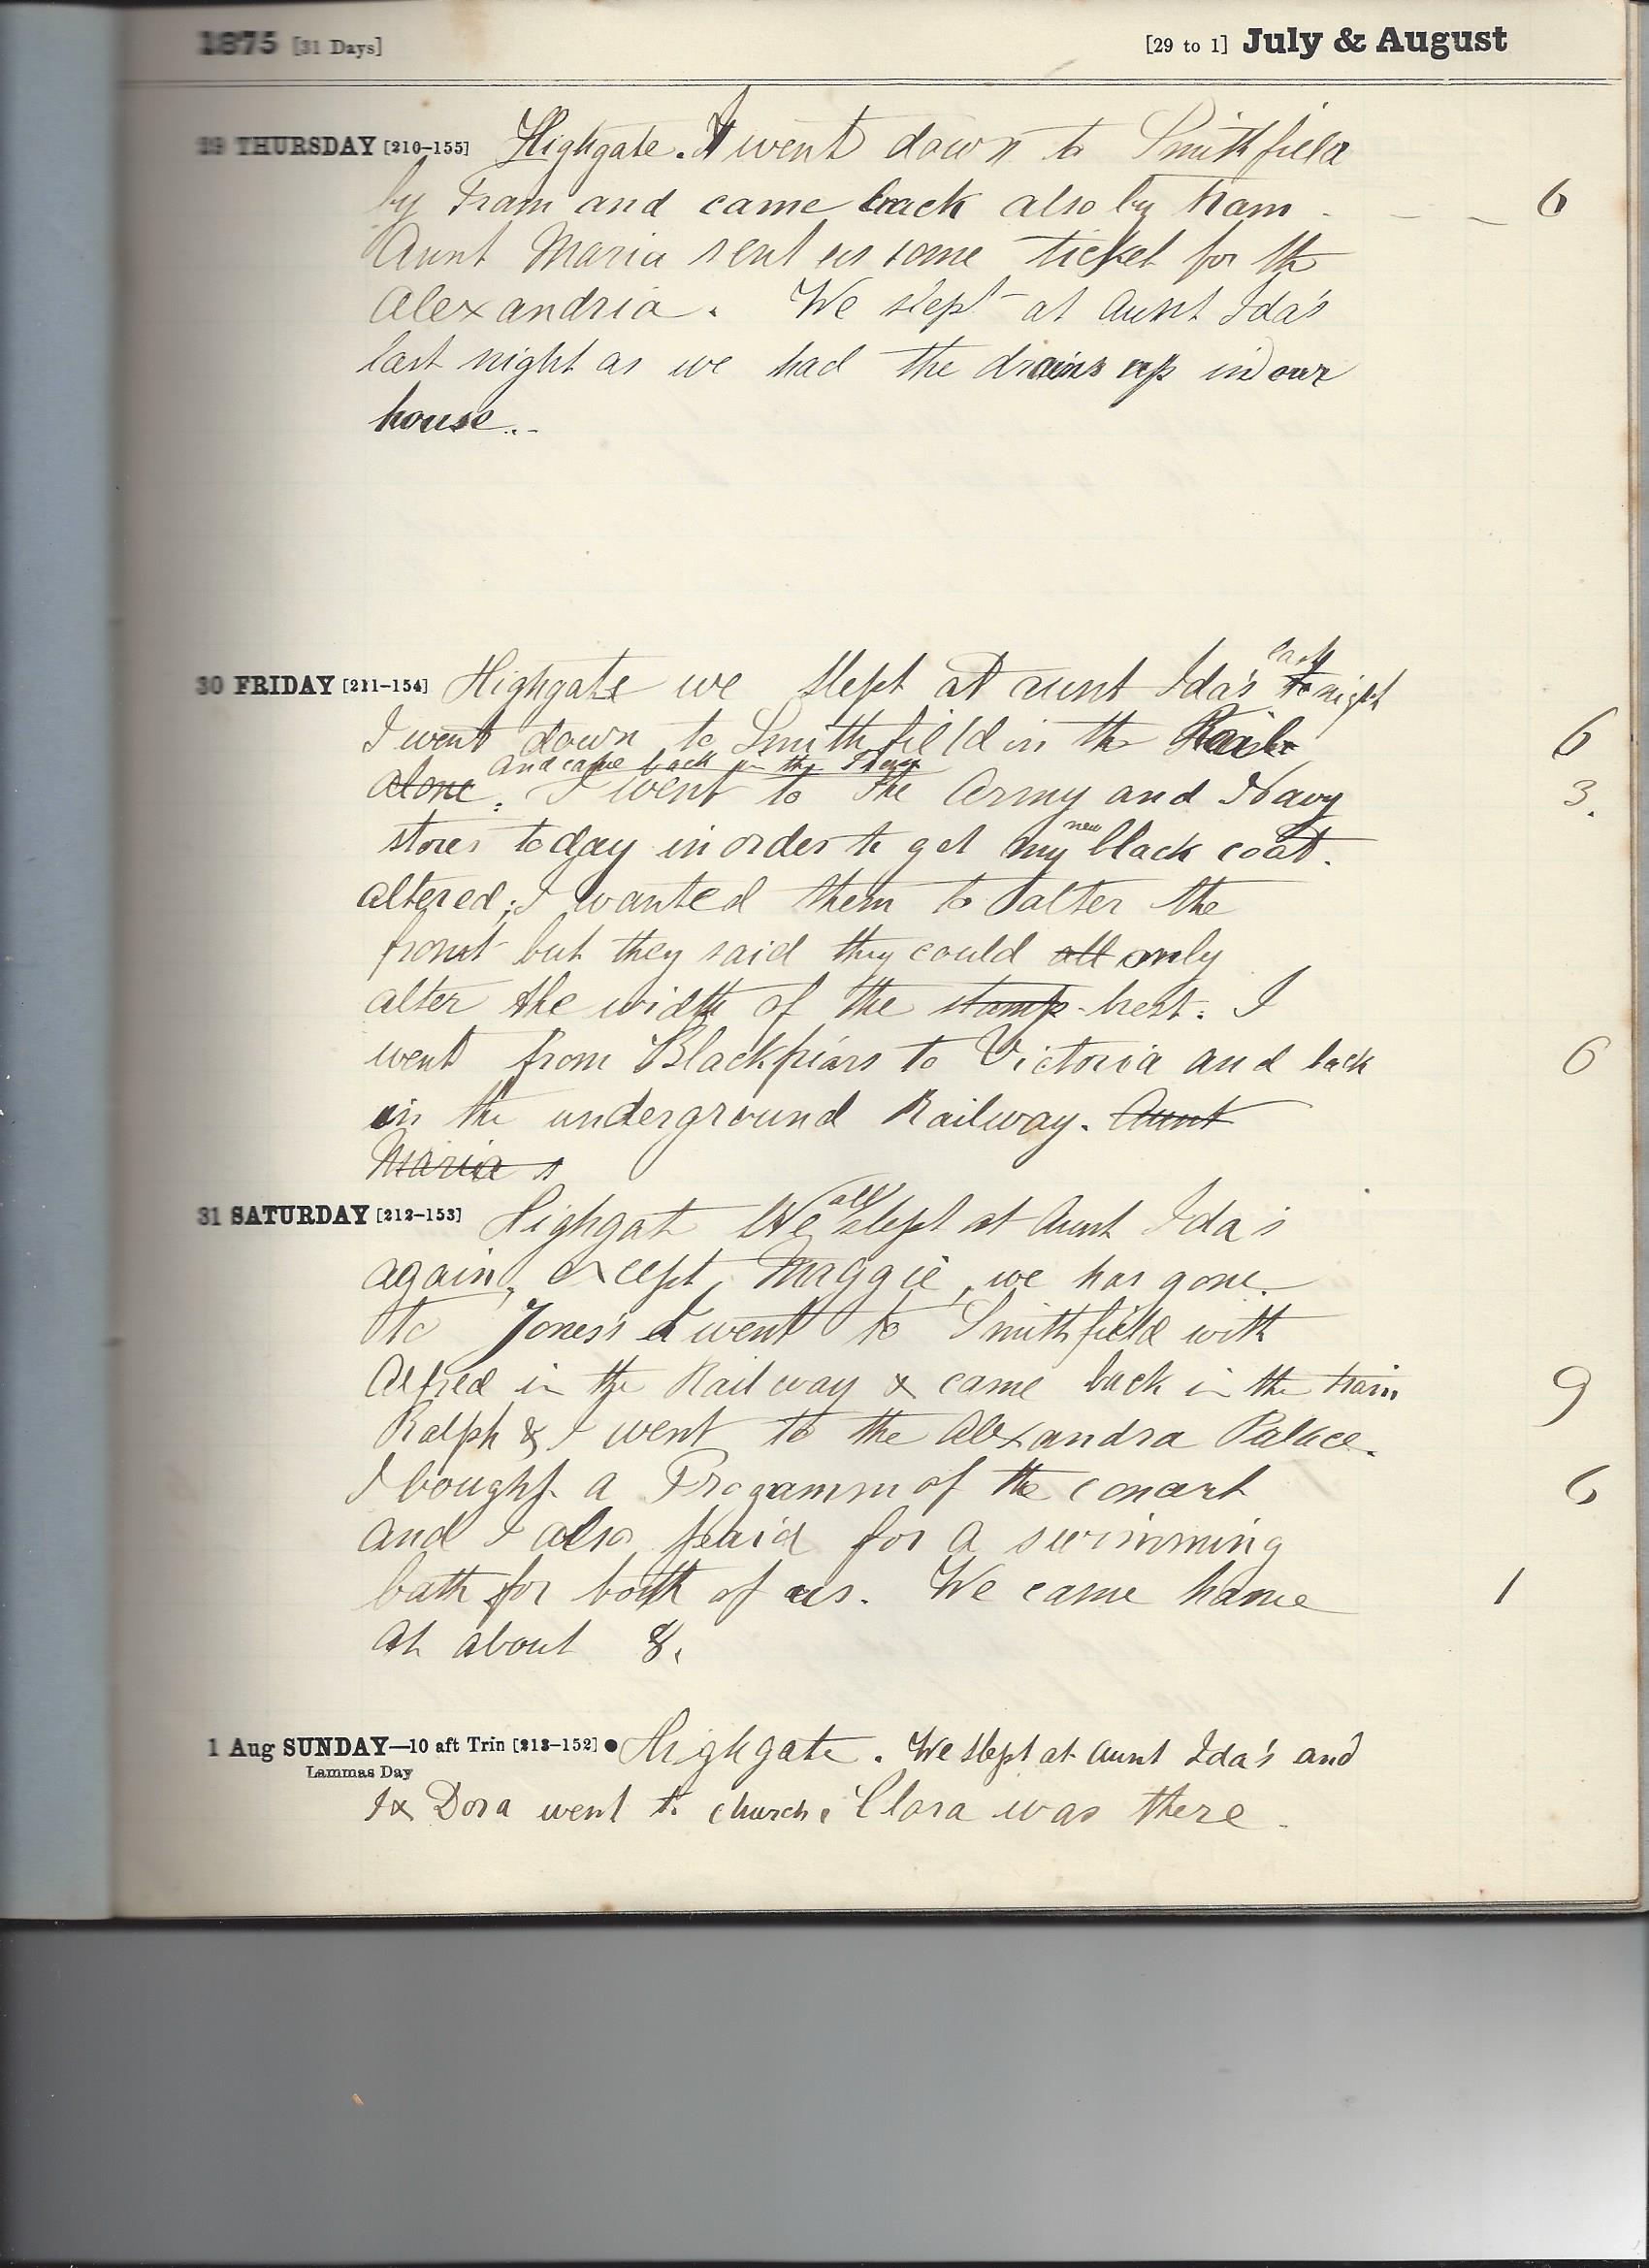 1875 [31 Days] [29 to 1] July & August
29 THURSDAY [210-155] Highgate. I went down to Smithfield
by Tram and came back also by tram - - - 6
Aunt Maria sent us some ticket for the
Alexandria. We slept at Aunt Ida's
last night as we had the drains up in our
house..-
last
30 FRIDAY [211-154] Highgate we slept at aunt Ida's to night
I went down to Smithfield in the Rail 6
and came back in the Tram
alone. I went to the Army and Navy 3.
new
stores today in order to get my black coat.
altered; I wanted them to alter the
front but they said they could alt only
alter the width of the brest. I
went from Blackfriars to Victoria and back 6
in the underground Railway. Aunt
Maria s
all
31 SATURDAY [212-153] Highgat We slept at Aunt Ida s
again, except, Maggie, we has gone.
to Jones's I went to Smithfield with
Alfred in the Railway & came back in the train 9
Ralph & I went to the Alexandra Palace.
I bought a Progamm of the concert 6
and I also paid for a swimming
bath for both of us. We came home 1
at about 8.
1 Aug SUNDAY—10 aft Trin [213-152] ● Highgate. We slept at Aunt Ida's and
Lammas Day
I & Dora went to church. Clara was there.